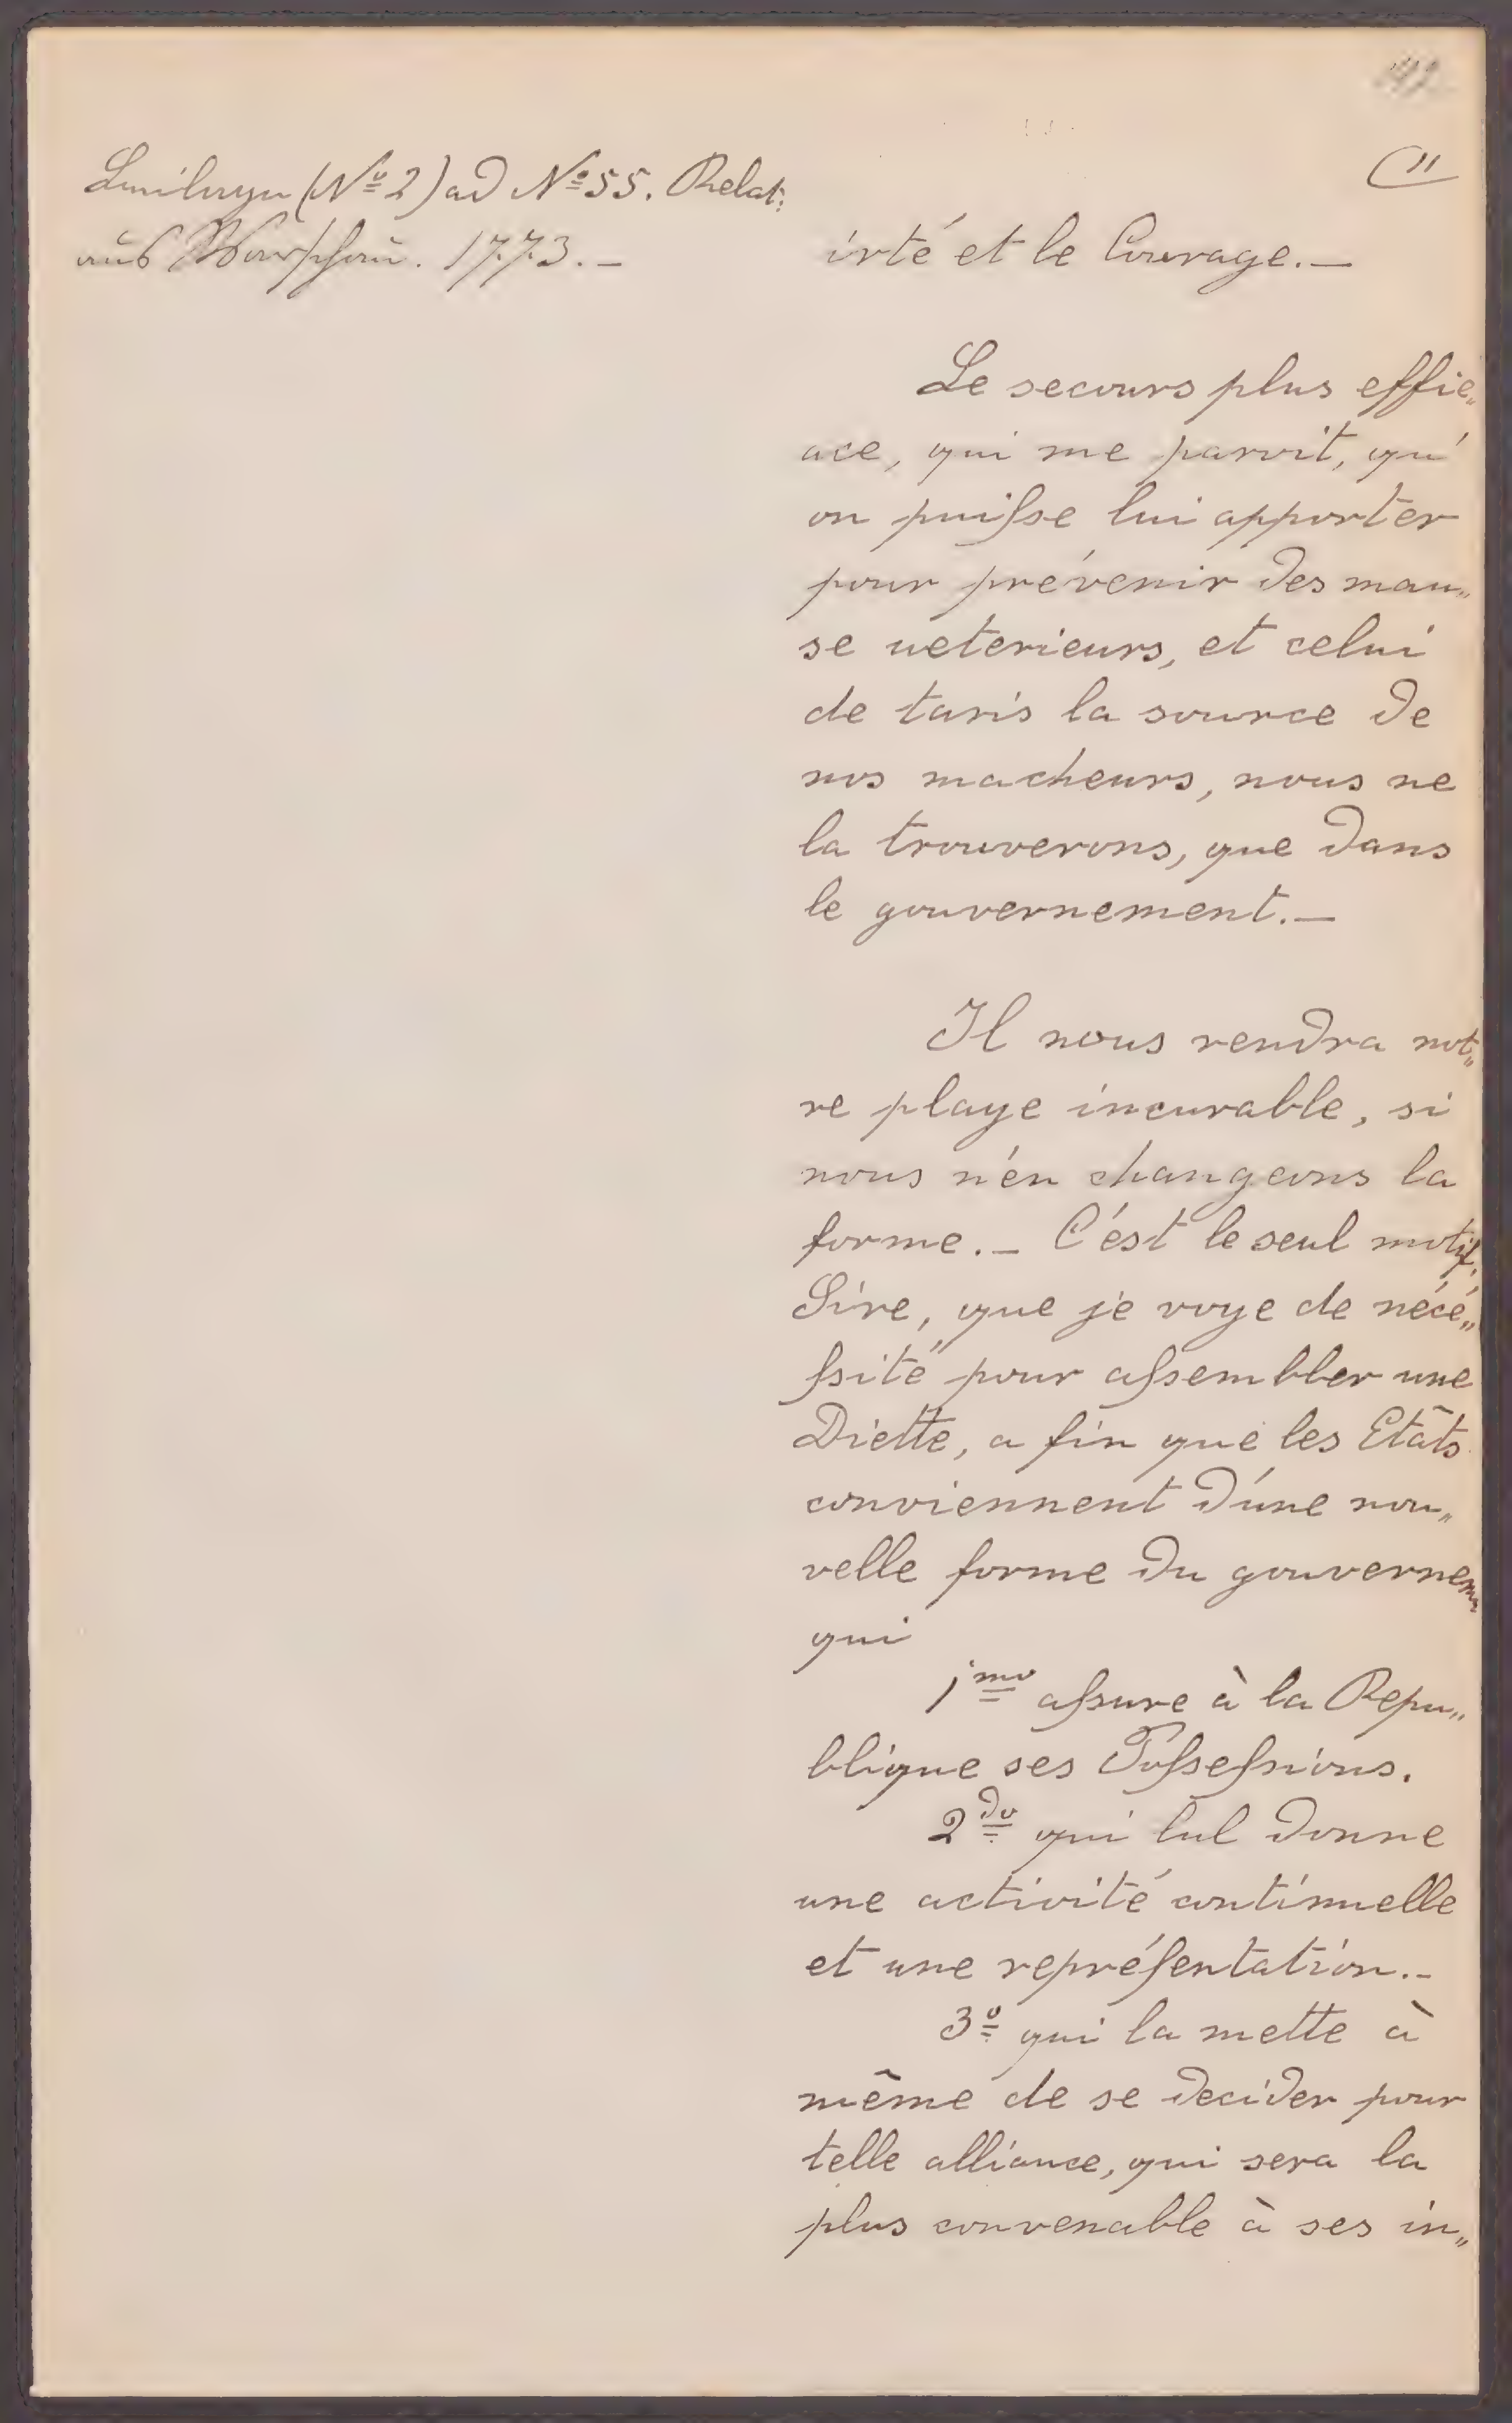 Beilage (Nº 2) ad Nº 55. Relat:
aus Warschau. 1773.—
(11
irté et le Courage.—
Le secours plus effic„
ace, qui me paroit, qu'
on puiſse lui apporter
pour prévenir des mau„
se ueterieurs, et celui
de taris la source de
nos macheurs, nous ne
la trouverons, que dans
le gouvernement.—
Il nous rendra not„
re playe incurable, si
nous n'én changeons la
forme.— C'ést le seul motif,
Sire, que je voye de nécé„
ſsité pour aſsembler une
Diette, a fin que les Etâts
conviennent d'úne nou„
velle forme du gouvernem
qui
1mo aſsure à la Repu„
blique ses Poſseſsions.
2do qui lul donne
une activité continuelle
et une repréſentation.—
3o qui la mette à
même de se decider pour
telle alliance, qui sera la
plus convenable à ses in„